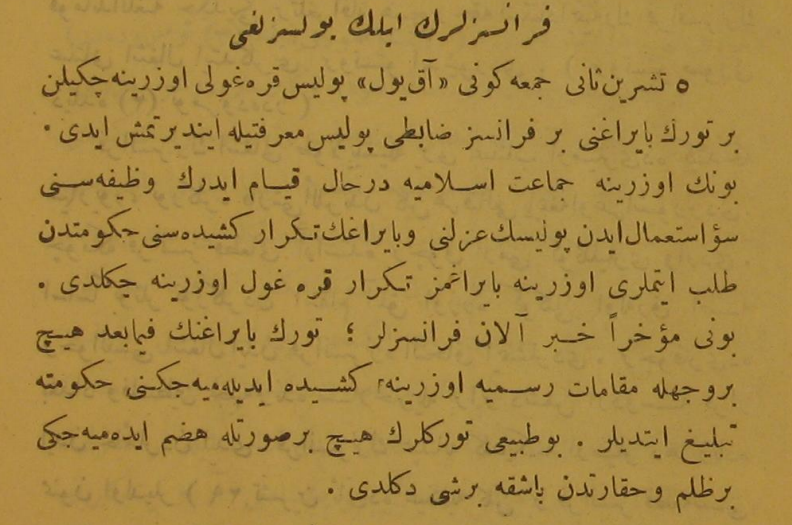 فرانسزلرك ايلك يولسزلغى
٥ تشرين ثانى جمعه كونى «آق يول» پوليس قره غولى اوزرينه چكيلن
بر تورك بايراغنى بر فرانسز ضابطى پوليس معرفتيله اينديرتمش ايدى .
بونك اوزرينه جماعت اسلاميه درحال قيام ايدرك وظيفه سنى
سؤ استعمال ايدن پوليسك عزلنى وبايراغك تكرار كشيده سنى حكومتدن
طلب ايتملرى اوزرينه بايراغمز تكرار قره غول اوزرينه چكلدى .
بونى مؤخراً خبر آلان فرانسزلر ؛ تورك بايراغنك فيمابعد هيچ
بروجهله مقامات رسميه اوزرينه كشيده ايديله ميه جكنى حكومته
تبليغ ايتديلر . بو طبيعى توركلرك هيچ برصورتله هضم ايده ميه جكى
برظلم وحقارتدن باشقه برشى دكلدى .